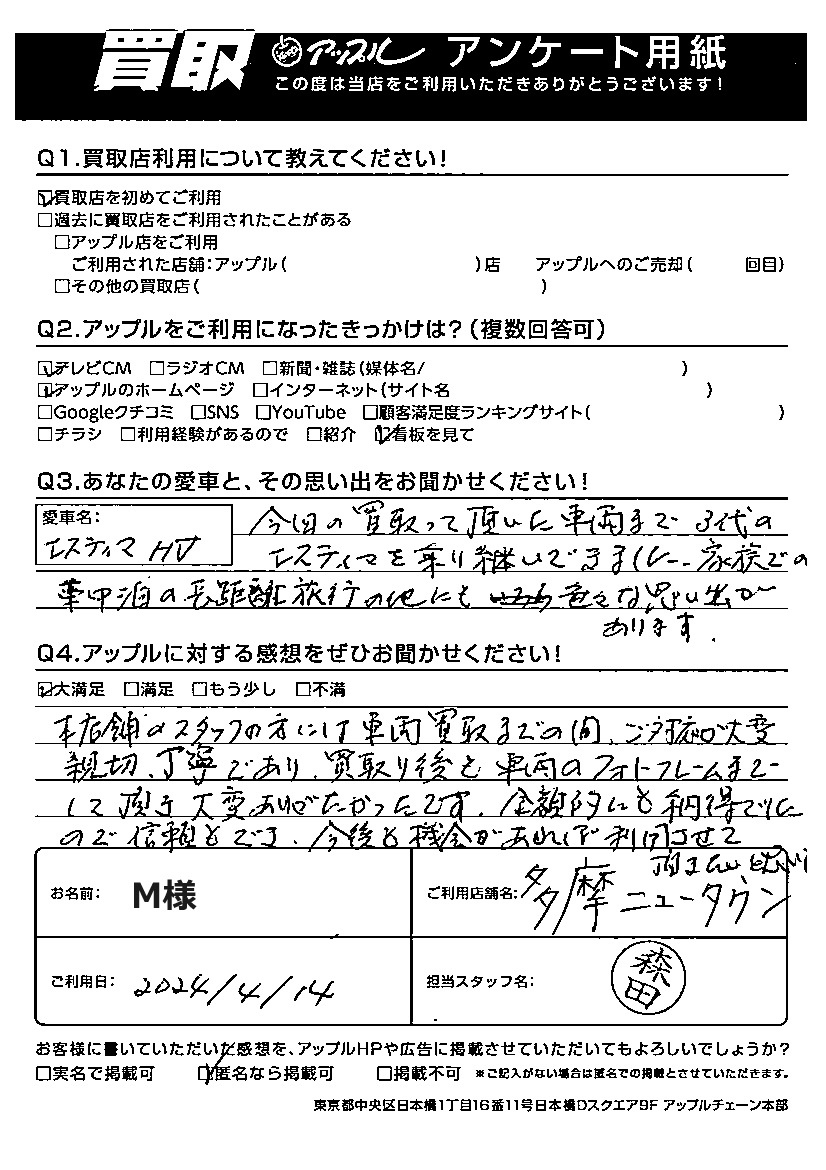 買取 アップル アンケート用紙
この度は当店をご利用いただきありがとうございます!
Q1.買取店利用について教えてください!
☑買取店を初めてご利用
□過去に買取店をご利用されたことがある
□アップル店をご利用
ご利用された店舗:アップル( )店 アップルへのご売却( 回目)
□その他の買取店( )
Q2.アップルをご利用になったきっかけは?(複数回答可)
☑テレビCM □ラジオCM □新聞・雑誌(媒体名/ )
☑アップルのホームページ □インターネット(サイト名 )
□Googleクチコミ □SNS □YouTube □顧客満足度ランキングサイト( )
□チラシ □利用経験があるので □紹介 ☑看板を見て
Q3.あなたの愛車と、その思い出をお聞かせください!
愛車名:
エスティマ HV
今回の買取って頂いた車両まで3代の
エスティマを乗り継いできました。家族での
車中泊の長距離旅行の他にも 色々な思い出が
あります.
Q4.アップルに対する感想をぜひお聞かせください!
☑大満足 □満足 □もう少し □不満
本店舗のスタッフの方には車両買取までの間、ご対応が大変
親切、丁寧であり、買取り後も車両のフォトフレームまで
して頂き大変ありがたかったです。金額的にも納得でした
ので信頼もでき、今後も機会があれば利用させて
頂きたいと思い
お名前: M様
ご利用店舗名: 多摩ニュータウン
ご利用日: 2024/4/14
担当スタッフ名: 森田
お客様に書いていただいた感想を、アップルHPや広告に掲載させていただいてもよろしいでしょうか?
□実名で掲載可 ☑匿名なら掲載可 □掲載不可 ※ご記入がない場合は匿名での掲載とさせていただきます。
東京都中央区日本橋1丁目16番11号日本橋Dスクエア9F アップルチェーン本部